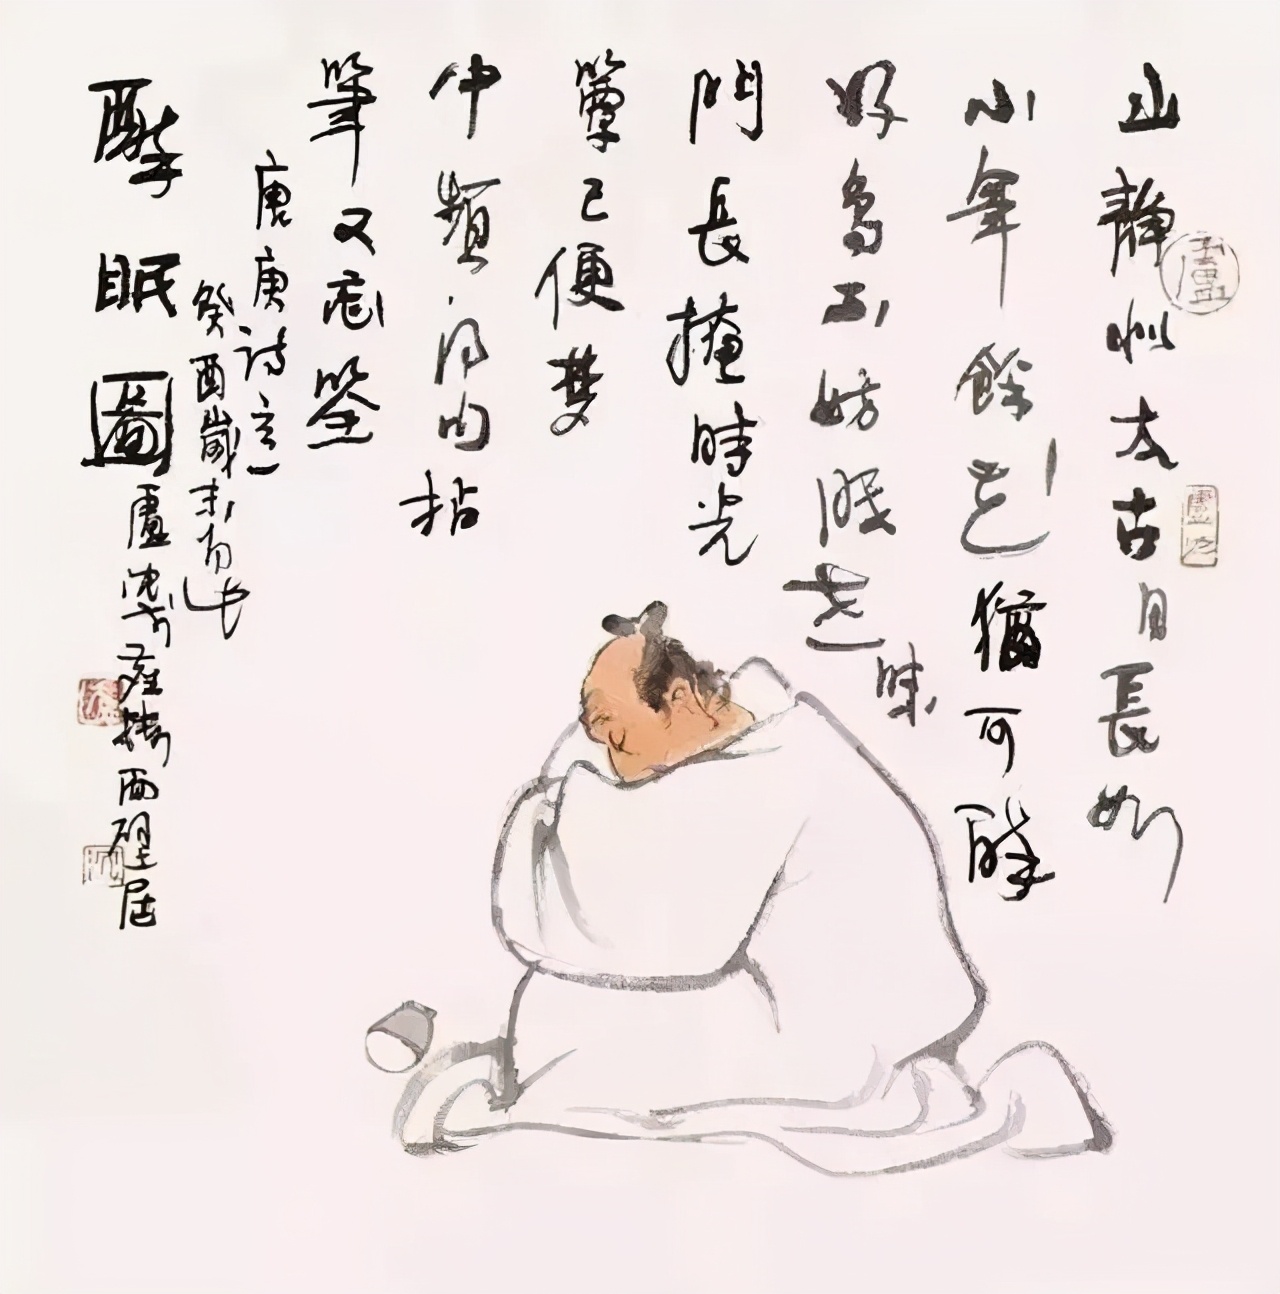 山靜似太古日長如
小年餘花猶可醉
好鳥不妨眠世味
門長掩時光
簟已便夢
中頻得句拈
筆又忘筌
唐庚詩意
癸酉歲末
醉眠圖
盧沉
西壁居
盧